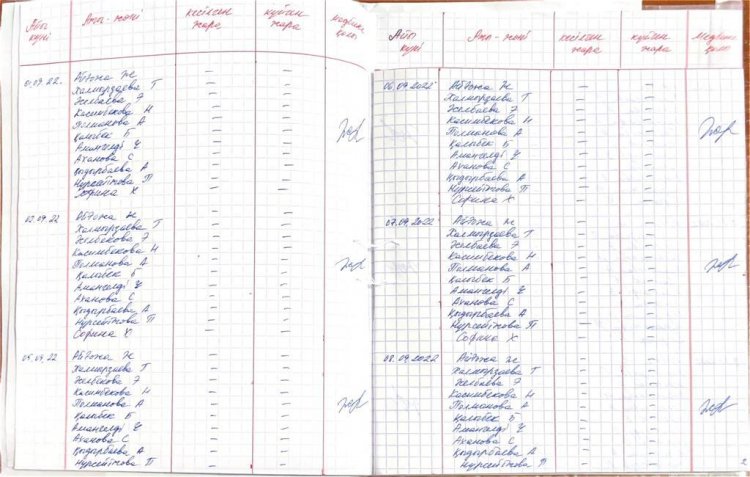 Айы күні Аты - жөні кесілген жара күйген жара медбике қолы
01.09.22. Абдожа Ж — —
Халмурзаева Т — —
Желбаева Э — —
Касимбекова Н — —
Полманова А — —
Қалыбек Б — —
Амангелді Ұ — —
Аханова С — —
Қыдырбаева А — —
Нурсейтова П — —
Сорина Х — —
02.09.22 Абдожа Ж — —
Халмурзаева Т — —
Желбекова Э — —
Касимбекова Н — —
Полманова А — —
Қалыбек Б — —
Амангелді Ұ — —
Аханова С — —
Қыдырбаева А — —
Нурсейтова П — —
Сорина Х — —
05.09.22 Абдожа Ж — —
Халмурзаева Т — —
Желбекова Э — —
Касимбекова Н — —
Полманова А — —
Қалыбек Б — —
Амангелді Ұ — —
Аханова С — —
Қыдырбаева А — —
Нурсейтова П — —
Айы күні Аты - жөні кесілген жара күйген жара Медбике қолы
06.09.2022 Абдожа Ж — —
Халмурзаева Т — —
Желбаева Э — —
Касимбекова Н — —
Полманова А — —
Қалыбек Б — —
Амангелді Ұ — —
Аханова С — —
Қыдырбаева А — —
Нурсейтова П — —
Сорина Х — —
07.09.2022 Абдожа Ж — —
Халмурзаева Т — —
Желбаева Э — —
Касимбекова Н — —
Полманова А — —
Қалыбек Б — —
Амангелді Ұ — —
Аханова С — —
Қыдырбаева А — —
Нурсейтова П — —
Сорина Х — —
08.09.2022 Абдожа Ж — —
Халмурзаева Т — —
Желбаева Э — —
Касимбекова Н — —
Полманова А — —
Қалыбек Б — —
Амангелді Ұ — —
Аханова С — —
Қыдырбаева А — —
Нурсейтова П — —
2